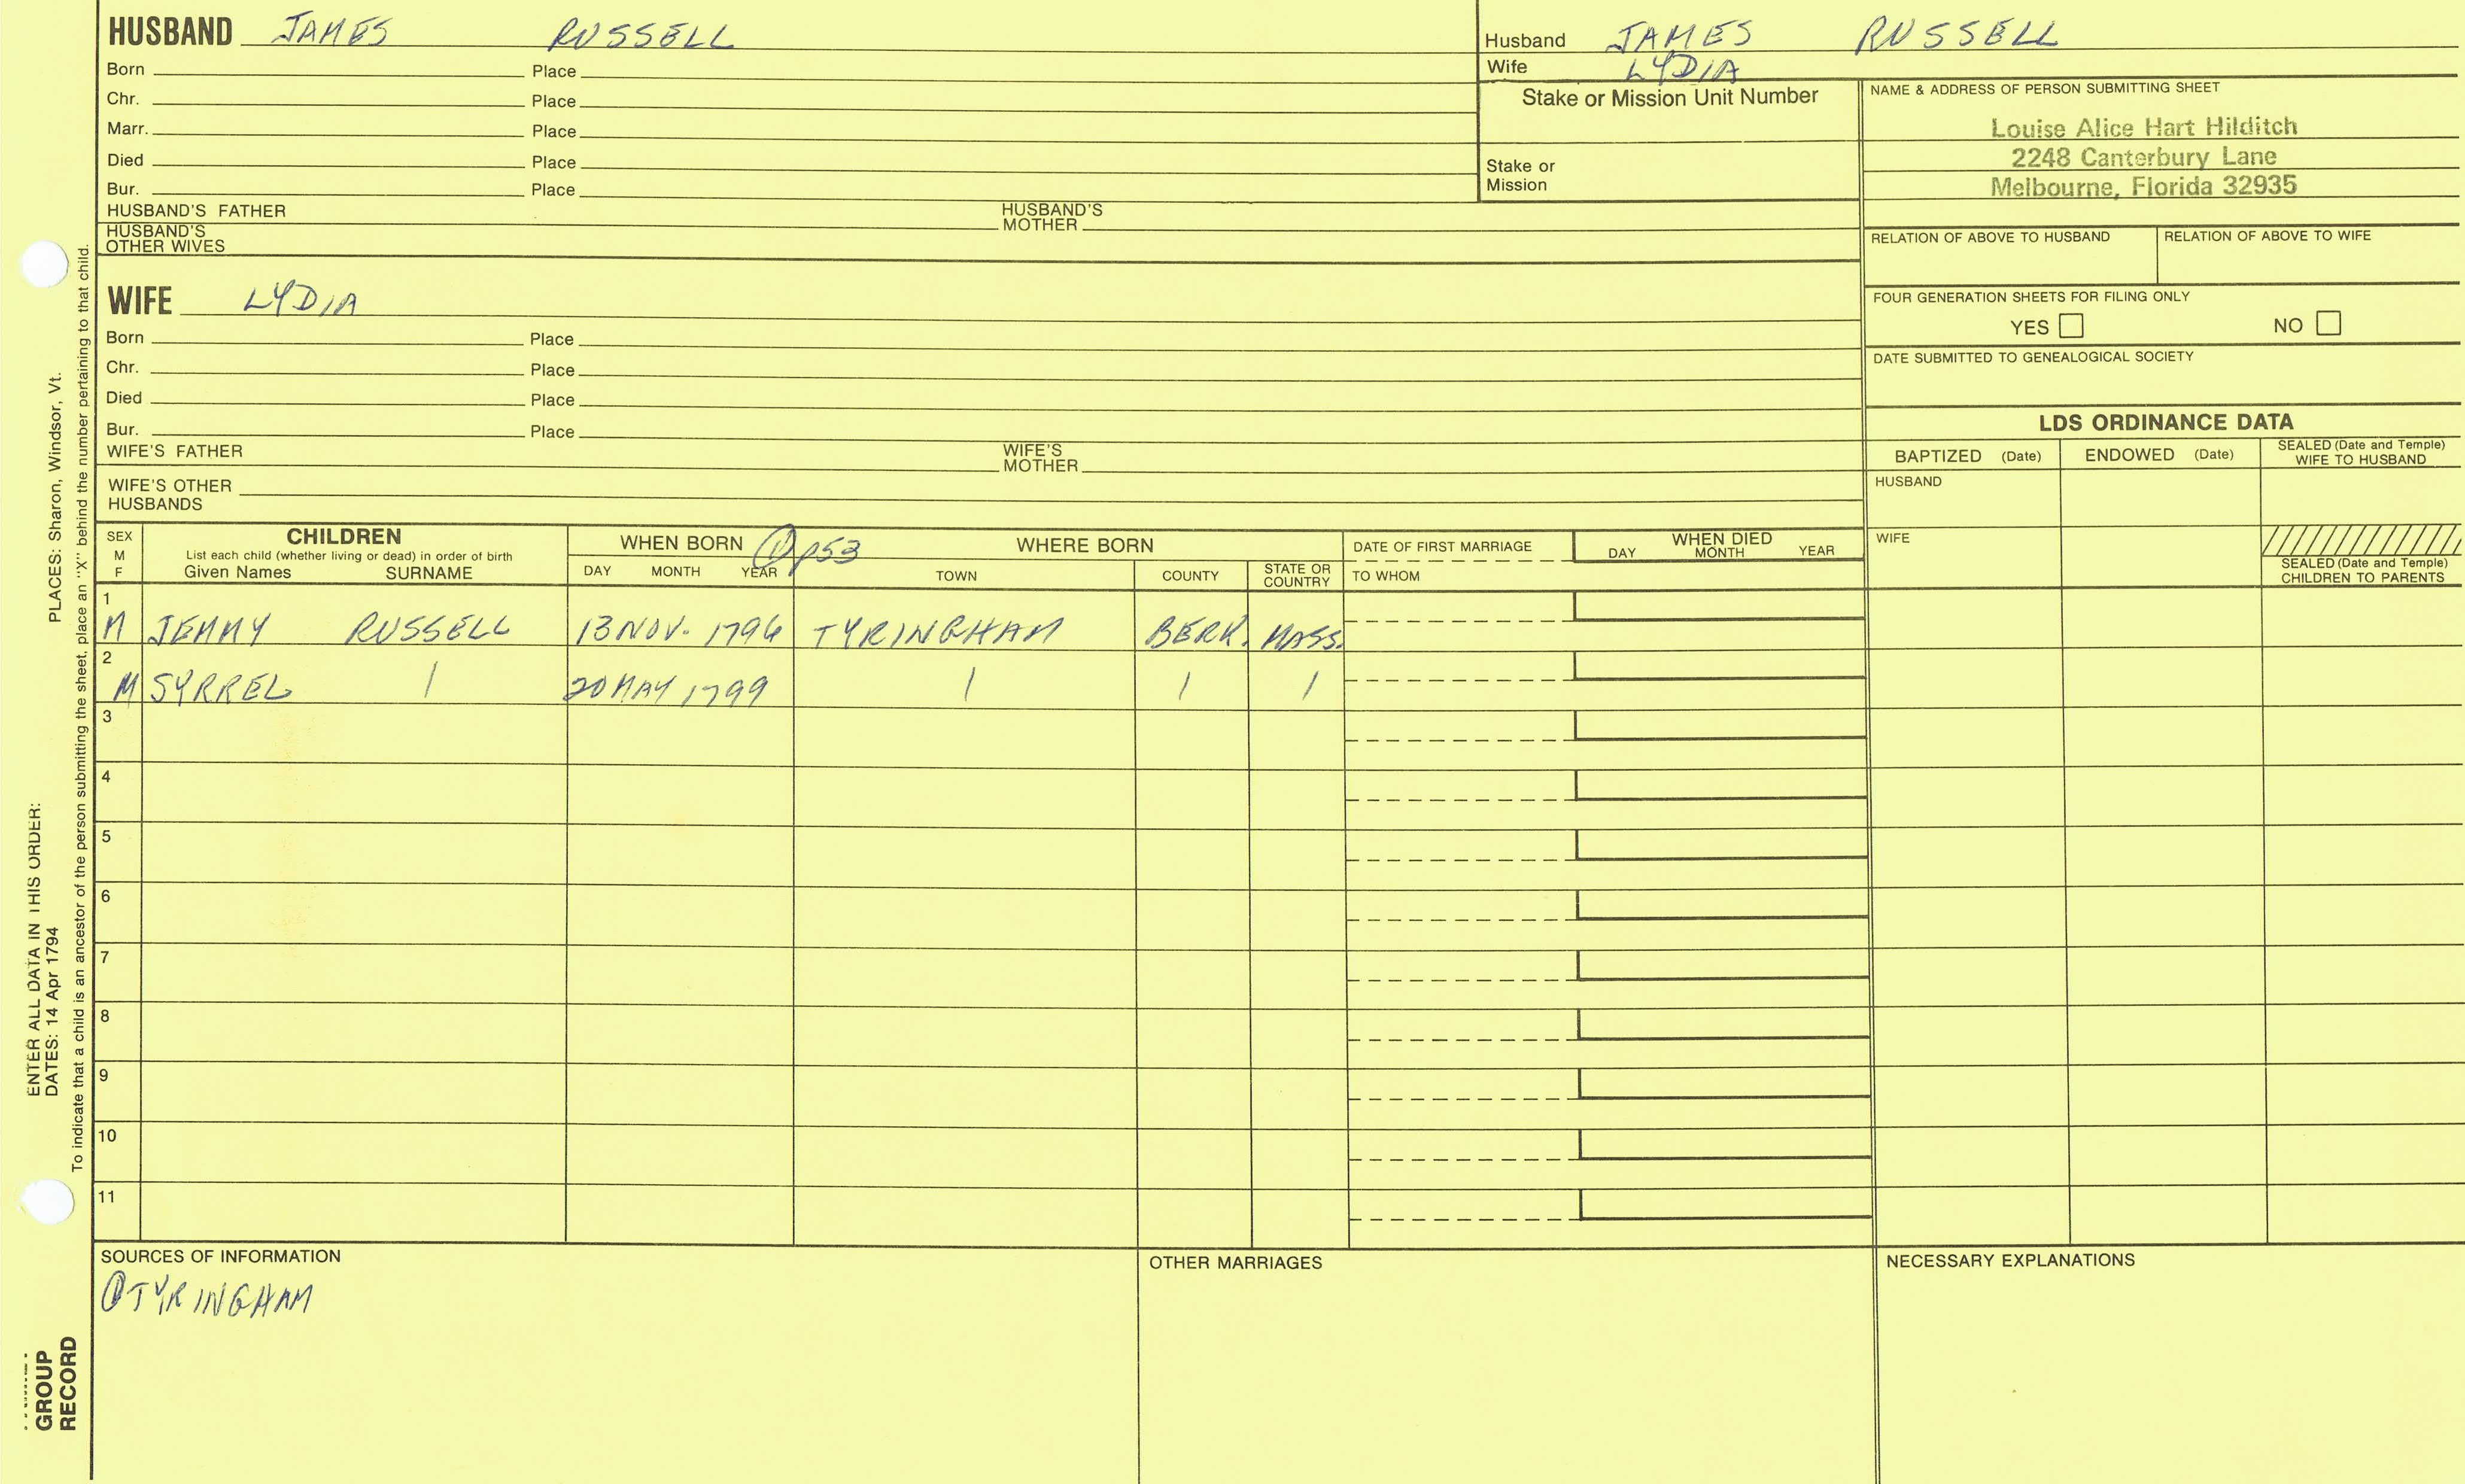 HUSBAND JAMES RUSSELL
Born Place
Chr. Place
Marr. Place
Died Place
Bur. Place
HUSBAND'S FATHER HUSBAND'S MOTHER
HUSBAND'S OTHER WIVES
Husband JAMES RUSSELL
Wife LYDIA
Stake or Mission Unit Number
Stake or
Mission
NAME & ADDRESS OF PERSON SUBMITTING SHEET
Louise Alice Hart Hilditch
2248 Canterbury Lane
Melbourne, Florida 32935
RELATION OF ABOVE TO HUSBAND RELATION OF ABOVE TO WIFE
FOUR GENERATION SHEETS FOR FILING ONLY
YES NO
DATE SUBMITTED TO GENEALOGICAL SOCIETY
WIFE LYDIA
Born Place
Chr. Place
Died Place
Bur. Place
WIFE'S FATHER WIFE'S MOTHER
WIFE'S OTHER
HUSBANDS
LDS ORDINANCE DATA
BAPTIZED (Date) ENDOWED (Date) SEALED (Date and Temple) WIFE TO HUSBAND
HUSBAND
WIFE
SEALED (Date and Temple)
CHILDREN TO PARENTS
SEX
M
F
CHILDREN
List each child (whether living or dead) in order of birth
Given Names SURNAME
WHEN BORN ① p53 WHERE BORN
DAY MONTH YEAR TOWN COUNTY STATE OR COUNTRY
DATE OF FIRST MARRIAGE
TO WHOM
WHEN DIED
DAY MONTH YEAR
1
M JEMMY RUSSELL 13 NOV. 1796 TYRINGHAM BERK. MASS.
2
M SYRREL / 20 MAY 1799 / / /
3
4
5
6
7
8
9
10
11
SOURCES OF INFORMATION
① TYRINGHAM
OTHER MARRIAGES
NECESSARY EXPLANATIONS
ENTER ALL DATA IN THIS ORDER:
DATES: 14 Apr 1794 PLACES: Sharon, Windsor, Vt.
To indicate that a child is an ancestor of the person submitting the sheet, place an "X" behind the number pertaining to that child.
GROUP
RECORD